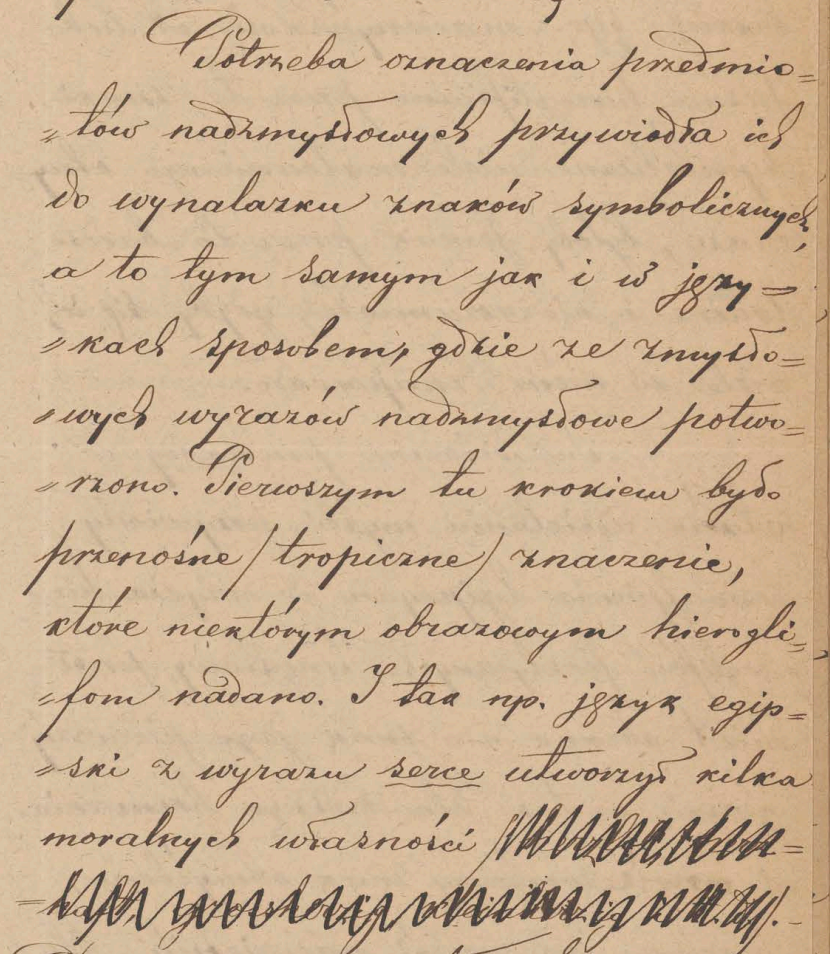 Potrzeba oznaczenia przedmio=
=tów nadzmysłowych przywiodła ich
do wynalazku znaków symbolicznych,
a to tym samym jak i w języ=
=kach sposobem, gdzie ze zmysło=
=wych wyrazów nadzmysłowe potwo=
=rzono. Pierwszym tu krokiem było
przenośne /tropiczne/ znaczenie,
które niektórym obrazowym hierogli=
=fom nadano. I tak np. język egip=
=ski z wyrazu serce utworzył kilka
moralnych własności